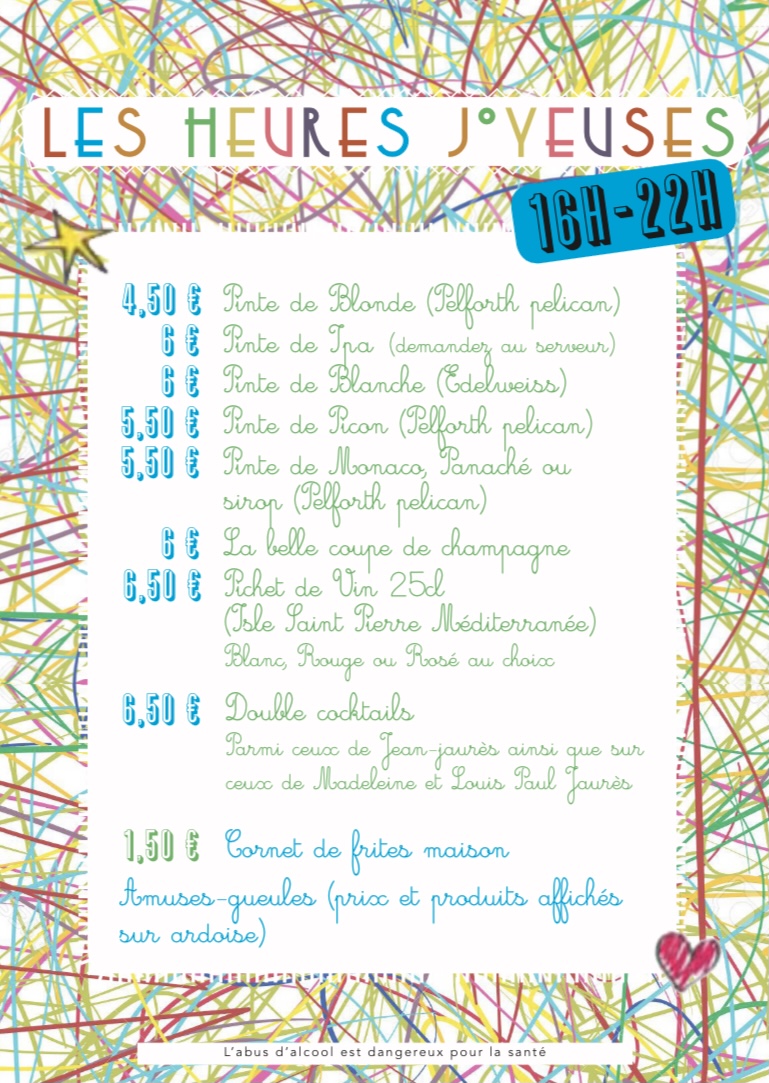 LES HEURES J°YEUSES
16H-22H
4,50 € Pinte de Blonde (Pelforth pelican)
6 € Pinte de Ipa (demandez au serveur)
6 € Pinte de Blanche (Edelweiss)
5,50 € Pinte de Picon (Pelforth pelican)
5,50 € Pinte de Monaco, Panaché ou
sirop (Pelforth pelican)
6 € La belle coupe de champagne
6,50 € Pichet de Vin 25cl
(Isle Saint Pierre Méditerranée)
Blanc, Rouge ou Rosé au choix
6,50 € Double cocktails
Parmi ceux de Jean-jaurès ainsi que sur
ceux de Madeleine et Louis Paul Jaurès
1,50 € Cornet de frites maison
Amuses-gueules (prix et produits affichés
sur ardoise)
L'abus d'alcool est dangereux pour la santé